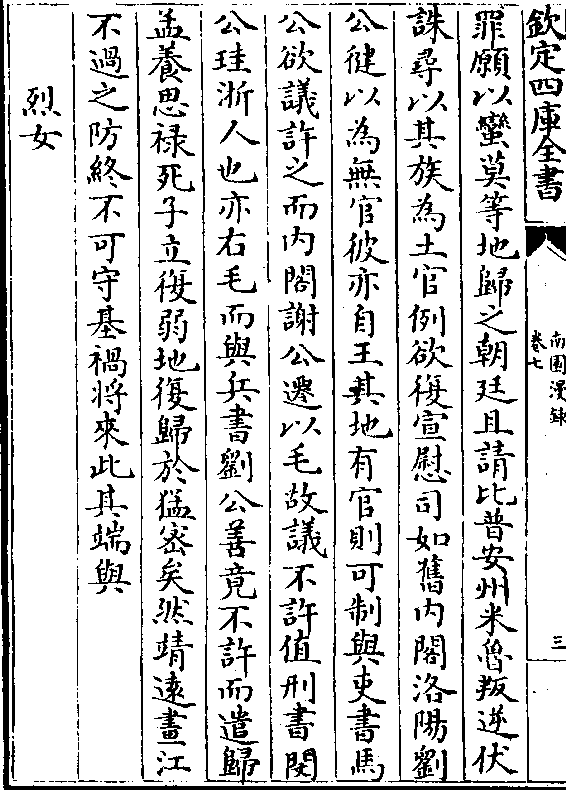 欽定四庫全書
南園漫録
卷七
三
罪願以蠻莫等地歸之朝廷且請比普安州米魯叛逆伏
誅尋以其族為土官例欲復宣慰司如舊内閣洛陽劉
公健以為無官彼亦自王其地有官則可制與吏書馬
公欲議許之而内閣謝公遷以毛故議不許值刑書閔
公珪浙人也亦右毛而與兵書劉公善竟不許而遣歸
孟養思禄死子立復弱地復歸於猛密矣然靖遠畫江
不過之防終不可守基禍将來此其端與
烈女